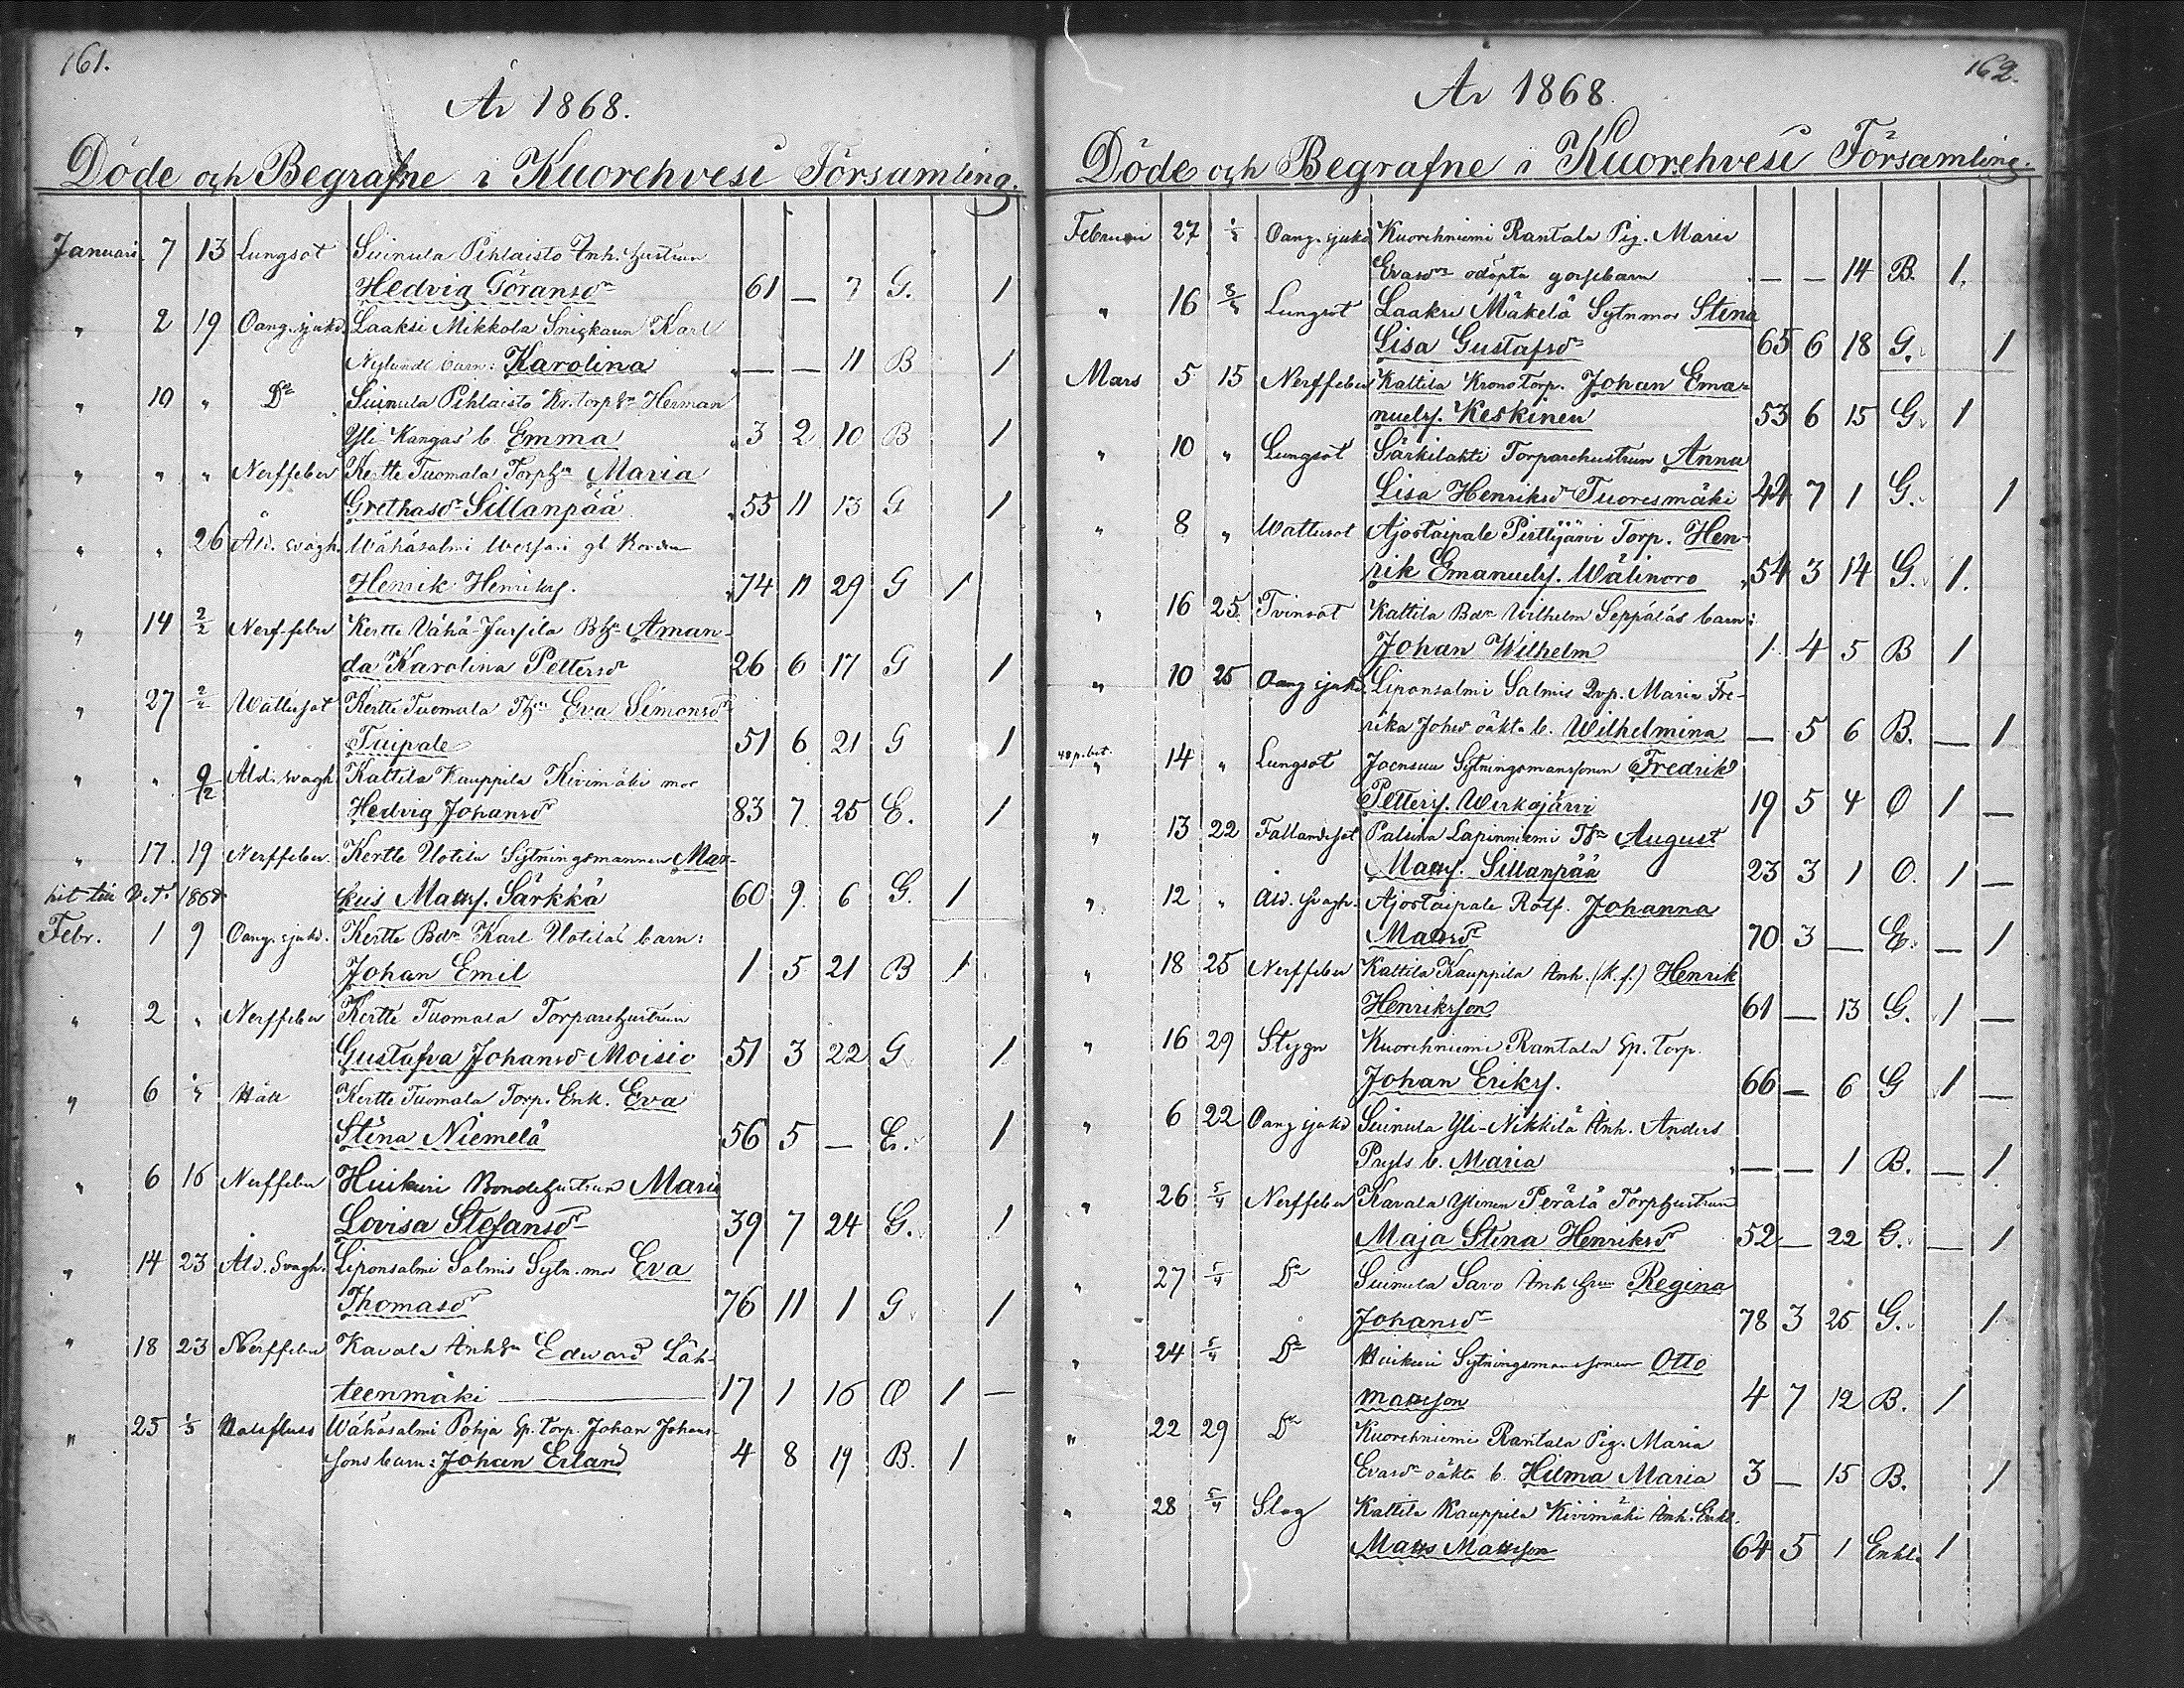 161.
År 1868.
Döde och Begrafne i Kuorehvesi Församling.
Januari 7 13 Lungsot Suinula Pihlaisto Inh. hustrun
Hedvig Göransdr 61 — 7 G. 1
" 2 19 Oang. sjukd. Laaksi Mikkola Snickaren Karl
Nylunds barn: Karolina — — 11 B 1
" 19 " Do Suinula Pihlaisto Kr. torp Herman
Yli-Kangas b. Emma 3 2 10 B 1
" " " Nerffeber Kertte Tuomala Torph. Maria
Grethasdr Sillanpää 55 11 13 G 1
" " 26 Åld. svagh. Wähäsalmi Wessari gl. Bonden
Henrik Henriks. 74 11 29 G 1
" 14 2/2 Nerf-feber Kertte Vähä-Jussila Bh. Aman-
da Karolina Pettersdr 26 6 17 G 1
" 27 2/2 Wattusot Kertte Tuomala Th. Eva Simonsdr
Taipale 51 6 21 G 1
" " 9/2 Åld. svagh Kattila Kauppila Kivimäki mor
Hedvig Johansdr 83 7 25 E. 1
" 17 19 Nerffeber Kertte Uotila Sytningsmannen Mar-
kus Matss. Särkkä 60 9 6 G. 1
hit till 1868
Febr. 1 9 Oang. sjukd. Kertte Bdn Karl Uotilas barn:
Johan Emil 1 5 21 B 1
" 2 " Nerffeber Kertte Tuomala Torparehustrun
Gustafva Johansdr Moisio 51 3 22 G 1
" 6 1/3 Håll Kertte Tuomala Torp. Enk. Eva
Stina Niemelä 56 5 — E. 1
" 6 16 Nerffeber Huikuri Bondehustrun Maria
Lovisa Stefansdr 39 7 24 G. 1
" 14 23 Åld. Svagh. Liponsalmi Salmis Sytn. mor Eva
Thomasdr 76 11 1 G 1
" 18 23 Nerffeber Kavala Inh. Edward Läh-
teenmäki 17 1 16 O 1 —
" 25 1/3 Halsfluss Wähäsalmi Pohja Sp. torp. Johan Johans-
sons barn: Johan Erland 4 8 19 B. 1
162.
År 1868.
Döde och Begrafne i Kuorehvesi Församling.
Februari 27 1/3 Oang. sjukd Kuorehniemi Rantala Pig. Maria
Evasdr odöpta gossebarn — — 14 B. 1.
" 16 8/3 Lungsot Laaksi Mäkelä Sytn mor Stina
Lisa Gustafsdr 65 6 18 G. 1
Mars 5 15 Nerffeber Kattila Krono Torp. Johan Ema-
nuels. Keskinen 53 6 15 G. 1
" 10 " Lungsot Särkilahti Torparehustrun Anna
Lisa Henriksdr Tuoresmäki 42 7 1 G. 1
" 8 " Wattusot Ajostaipale Pirttijärvi Torp. Hen-
rik Emanuels. Wälinoro 54 3 14 G. 1.
" 16 25 Tvinsot Kattila Bdn Wilhelm Seppäläs barn:
Johan Wilhelm 1 4 5 B 1
" 10 25 Oang sjukd. Liponsalmi Salmis Maria Fre-
rika Johsdr oäkta b. Wilhelmina — 5 6 B. — 1
" 14 " Lungsot Joensuu Sytningsmanssonen Fredrik
Petters. Wirkajärvi 19 5 4 O 1 —
" 13 22 Fallandesot Palsina Lapinniemi August
Matss. Sillanpää 23 3 1 O. 1 —
" 12 " Åld. svagh. Ajostaipale Rotf. Johanna
Matsdr 70 3 — — 1
" 18 25 Nerffeber Kattila Kauppila Inh. (k. f.) Henrik
Henriksson 61 — 13 G. 1 —
" 16 29 Stygn Kuorehniemi Rantala Sp. torp.
Johan Eriks. 66 — 6 G 1 —
" 6 22 Oang sjukd Suinula Yli-Nikkilä Inh. Anders
b. Maria — — 1 B. — 1
" 26 5/4 Nerffeber Kavala Ylinen Perälä Torphustrun
Maja Stina Henriksdr 52 — 22 G. — 1
" 27 5/4 Do Suinula Savo Inh Regina
Johansdr 78 3 25 G. 1
" 24 5/4 Do Huikuri Sytningsmanssonen Otto
Matsson 4 7 12 B. 1
" 22 29 Do Kuorehniemi Rantala Pig. Maria
Evasdr oäkta b. Hilma Maria 3 — 15 B. 1
" 28 5/4 Slag Kattila Kauppila Kivimäki Inh. Enkl.
Mats Matsson 64 5 1 Enkl. 1